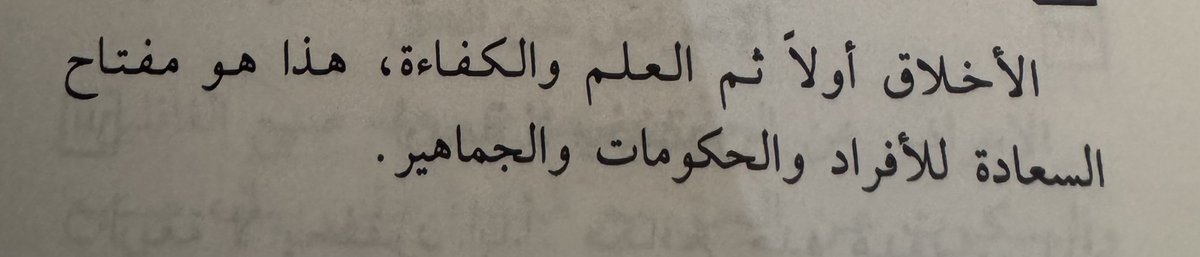 الأخلاق أولاً ثم العلم والكفاءة، هذا هو مفتاح
السعادة للأفراد والحكومات والجماهير.